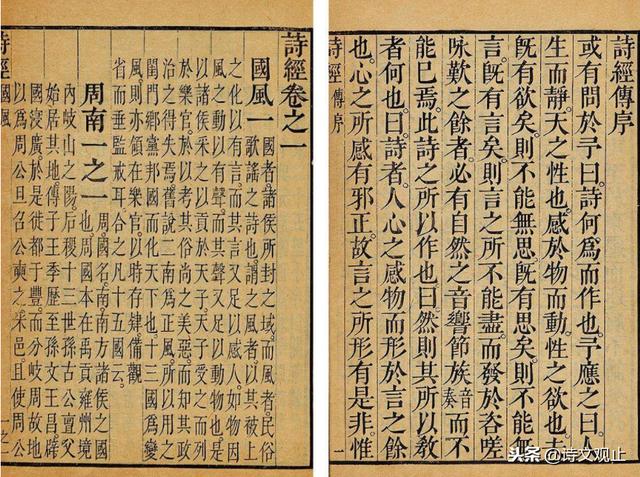 詩經傳序
或有問於予曰。詩何爲而作也。予應之曰。人
生而靜。天之性也。感於物而動。性之欲也。夫
旣有欲矣。則不能無思。旣有思矣。則不能無
言。旣有言矣。則言之所不能盡。而發於咨嗟
咏歎之餘者。必有自然之音響節族音奏而不
能已焉。此詩之所以作也。曰。然則其所以敎
者何也。曰。詩者。人心之感物而形於言之餘
也。心之所感有邪正。故言之所形有是非。惟
詩經 傳序 一
詩經卷之一
國風一 國者諸侯所封之域。而風者民俗
歌謠之詩也。謂之風者。以其被上
之化以有言。而其言又足以感人。如物因
風之動以有聲。而其聲又足以動物也。是
以諸侯采之以貢於天子。天子受之而列
於樂官。於以考其俗尚之美惡。而知其政
治之得失焉。舊說二南爲正風。所以用之
閨門鄉黨邦國而化天下也。十三國爲變
風。則亦領在樂官。以時存肄。備觀
省而垂監戒耳。合之凡十五國云。
周南一之一 周。國名。南。南方諸侯之國
也。周國本在禹貢雍州境
內岐山之陽。后稷十三世孫古公亶父
始居其地。傳子王季歷。至孫文王昌。辟
國寖廣。於是徙都于豐。而分岐周故地
以爲周公旦召公奭之采邑。且使周公
詩經 國風
头条 @诗文观止